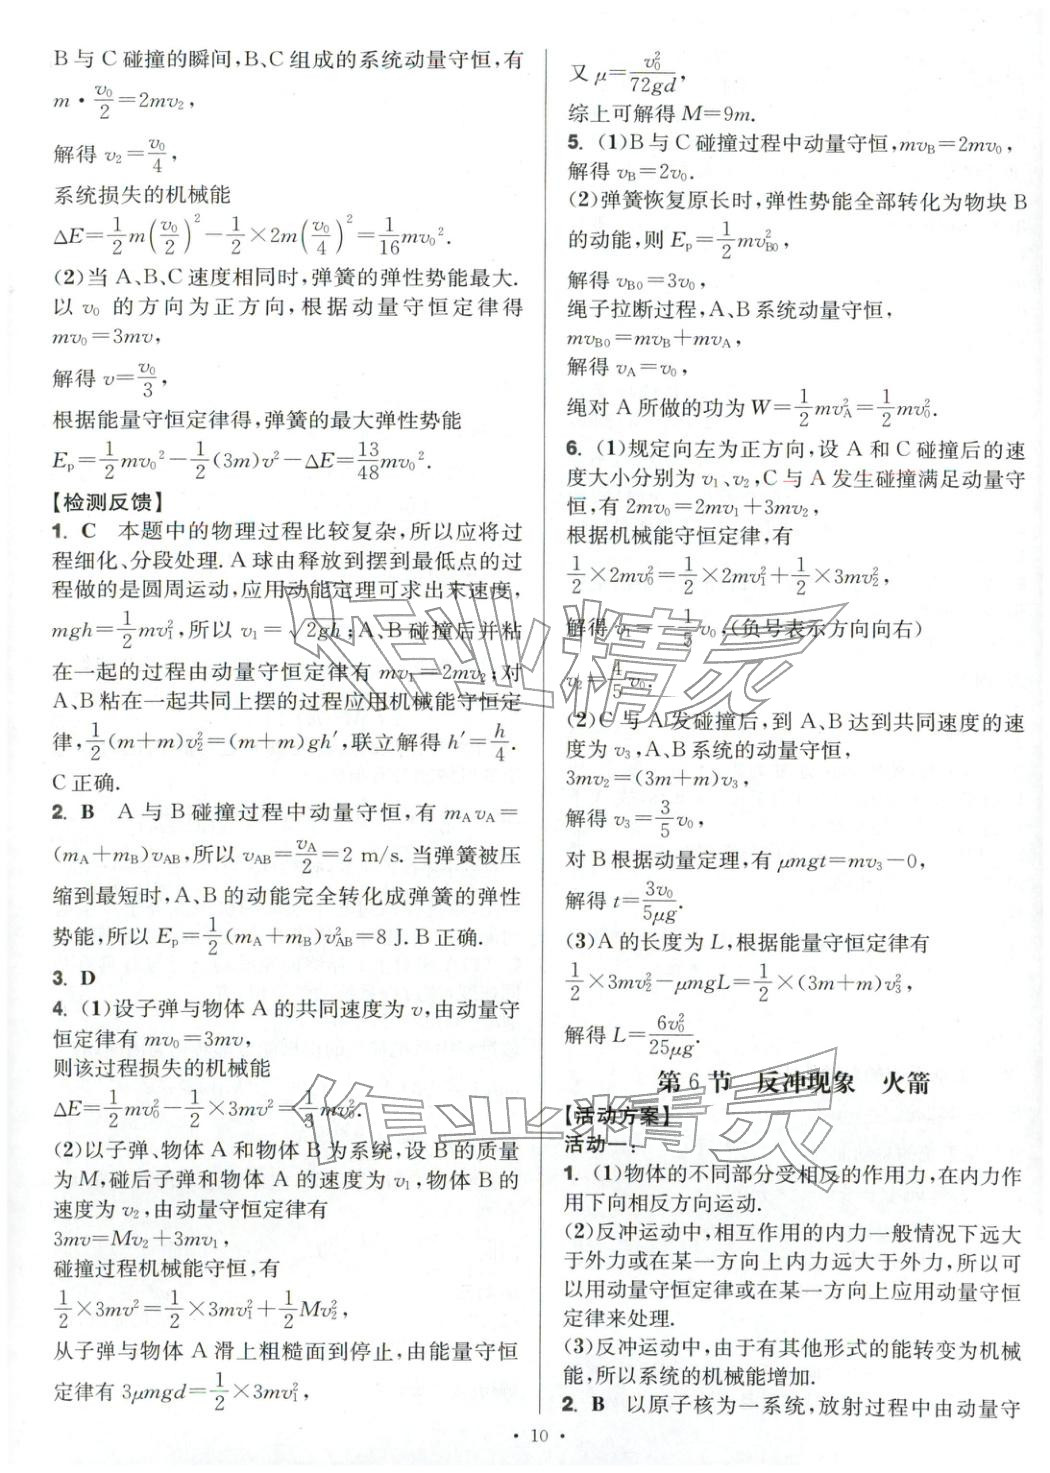 B 与 C 碰撞的瞬间,B、C 组成的系统动量守恒,有
m·v₀/2=2mv₂,
解得 v₂=v₀/4,
系统损失的机械能
ΔE=1/2 m(v₀/2)²-1/2×2m(v₀/4)²=1/16 mv₀².
(2)当 A、B、C 速度相同时,弹簧的弹性势能最大.
以 v₀ 的方向为正方向,根据动量守恒定律得
mv₀=3mv,
解得 v=v₀/3,
根据能量守恒定律得,弹簧的最大弹性势能
Eₚ=1/2 mv₀²-1/2(3m)v²-ΔE=13/48 mv₀².
【检测反馈】
1. C 本题中的物理过程比较复杂,所以应将过
程细化、分段处理. A 球由释放到摆到最低点的过
程做的是圆周运动,应用动能定理可求出末速度,
mgh=1/2 mv₁²,所以 v₁=√2gh;A、B 碰撞后并粘
在一起的过程由动量守恒定律有 mv₁=2mv₂;对
A、B 粘在一起共同上摆的过程应用机械能守恒定
律,1/2(m+m)v₂²=(m+m)gh′,联立解得 h′=h/4.
C 正确.
2. B A 与 B 碰撞过程中动量守恒,有 m_A v_A=
(m_A+m_B)v_AB,所以 v_AB=v_A/2=2 m/s. 当弹簧被压
缩到最短时,A、B 的动能完全转化成弹簧的弹性
势能,所以 Eₚ=1/2(m_A+m_B)v_AB²=8 J. B 正确.
3. D
4. (1)设子弹与物体 A 的共同速度为 v,由动量守
恒定律有 mv₀=3mv,
则该过程损失的机械能
ΔE=1/2 mv₀²-1/2×3mv²=1/3 mv₀².
(2)以子弹、物体 A 和物体 B 为系统,设 B 的质量
为 M,碰后子弹和物体 A 的速度为 v₁,物体 B 的
速度为 v₂,由动量守恒定律有
3mv=Mv₂+3mv₁,
碰撞过程机械能守恒,有
1/2×3mv²=1/2×3mv₁²+1/2 Mv₂²,
从子弹与物体 A 滑上粗糙面到停止,由能量守恒
定律有 3μmgd=1/2×3mv₁²,
又 μ=v₀²/72gd,
综上可解得 M=9m.
5. (1)B 与 C 碰撞过程中动量守恒,mv_B=2mv₀,
解得 v_B=2v₀.
(2)弹簧恢复原长时,弹性势能全部转化为物块 B
的动能,则 Eₚ=1/2 mv_B0²,
解得 v_B0=3v₀,
绳子拉断过程,A、B 系统动量守恒,
mv_B0=mv_B+mv_A,
解得 v_A=v₀,
绳对 A 所做的功为 W=1/2 mv_A²=1/2 mv₀².
6. (1)规定向左为正方向,设 A 和 C 碰撞后的速
度大小分别为 v₁、v₂,C 与 A 发生碰撞满足动量守
恒,有 2mv₀=2mv₁+3mv₂,
根据机械能守恒定律,有
1/2×2mv₀²=1/2×2mv₁²+1/2×3mv₂²,
解得 v₁=-1/5 v₀,(负号表示方向向右)
v₂=4/5 v₀;
(2)C 与 A 发碰撞后,到 A、B 达到共同速度的速
度为 v₃,A、B 系统的动量守恒,
3mv₂=(3m+m)v₃,
解得 v₃=3/5 v₀,
对 B 根据动量定理,有 μmgt=mv₃-0,
解得 t=3v₀/5μg.
(3)A 的长度为 L,根据能量守恒定律有
1/2×3mv₂²-μmgL=1/2×(3m+m)v₃²,
解得 L=6v₀²/25μg.
第 6 节 反冲现象 火箭
【活动方案】
活动一:
1. (1)物体的不同部分受相反的作用力,在内力作
用下向相反方向运动.
(2)反冲运动中,相互作用的内力一般情况下远大
于外力或在某一方向上内力远大于外力,所以可
以用动量守恒定律或在某一方向上应用动量守恒
定律来处理.
(3)反冲运动中,由于有其他形式的能转变为机械
能,所以系统的机械能增加.
2. B 以原子核为一系统,放射过程中由动量守
·10·
作业精灵
作业精灵